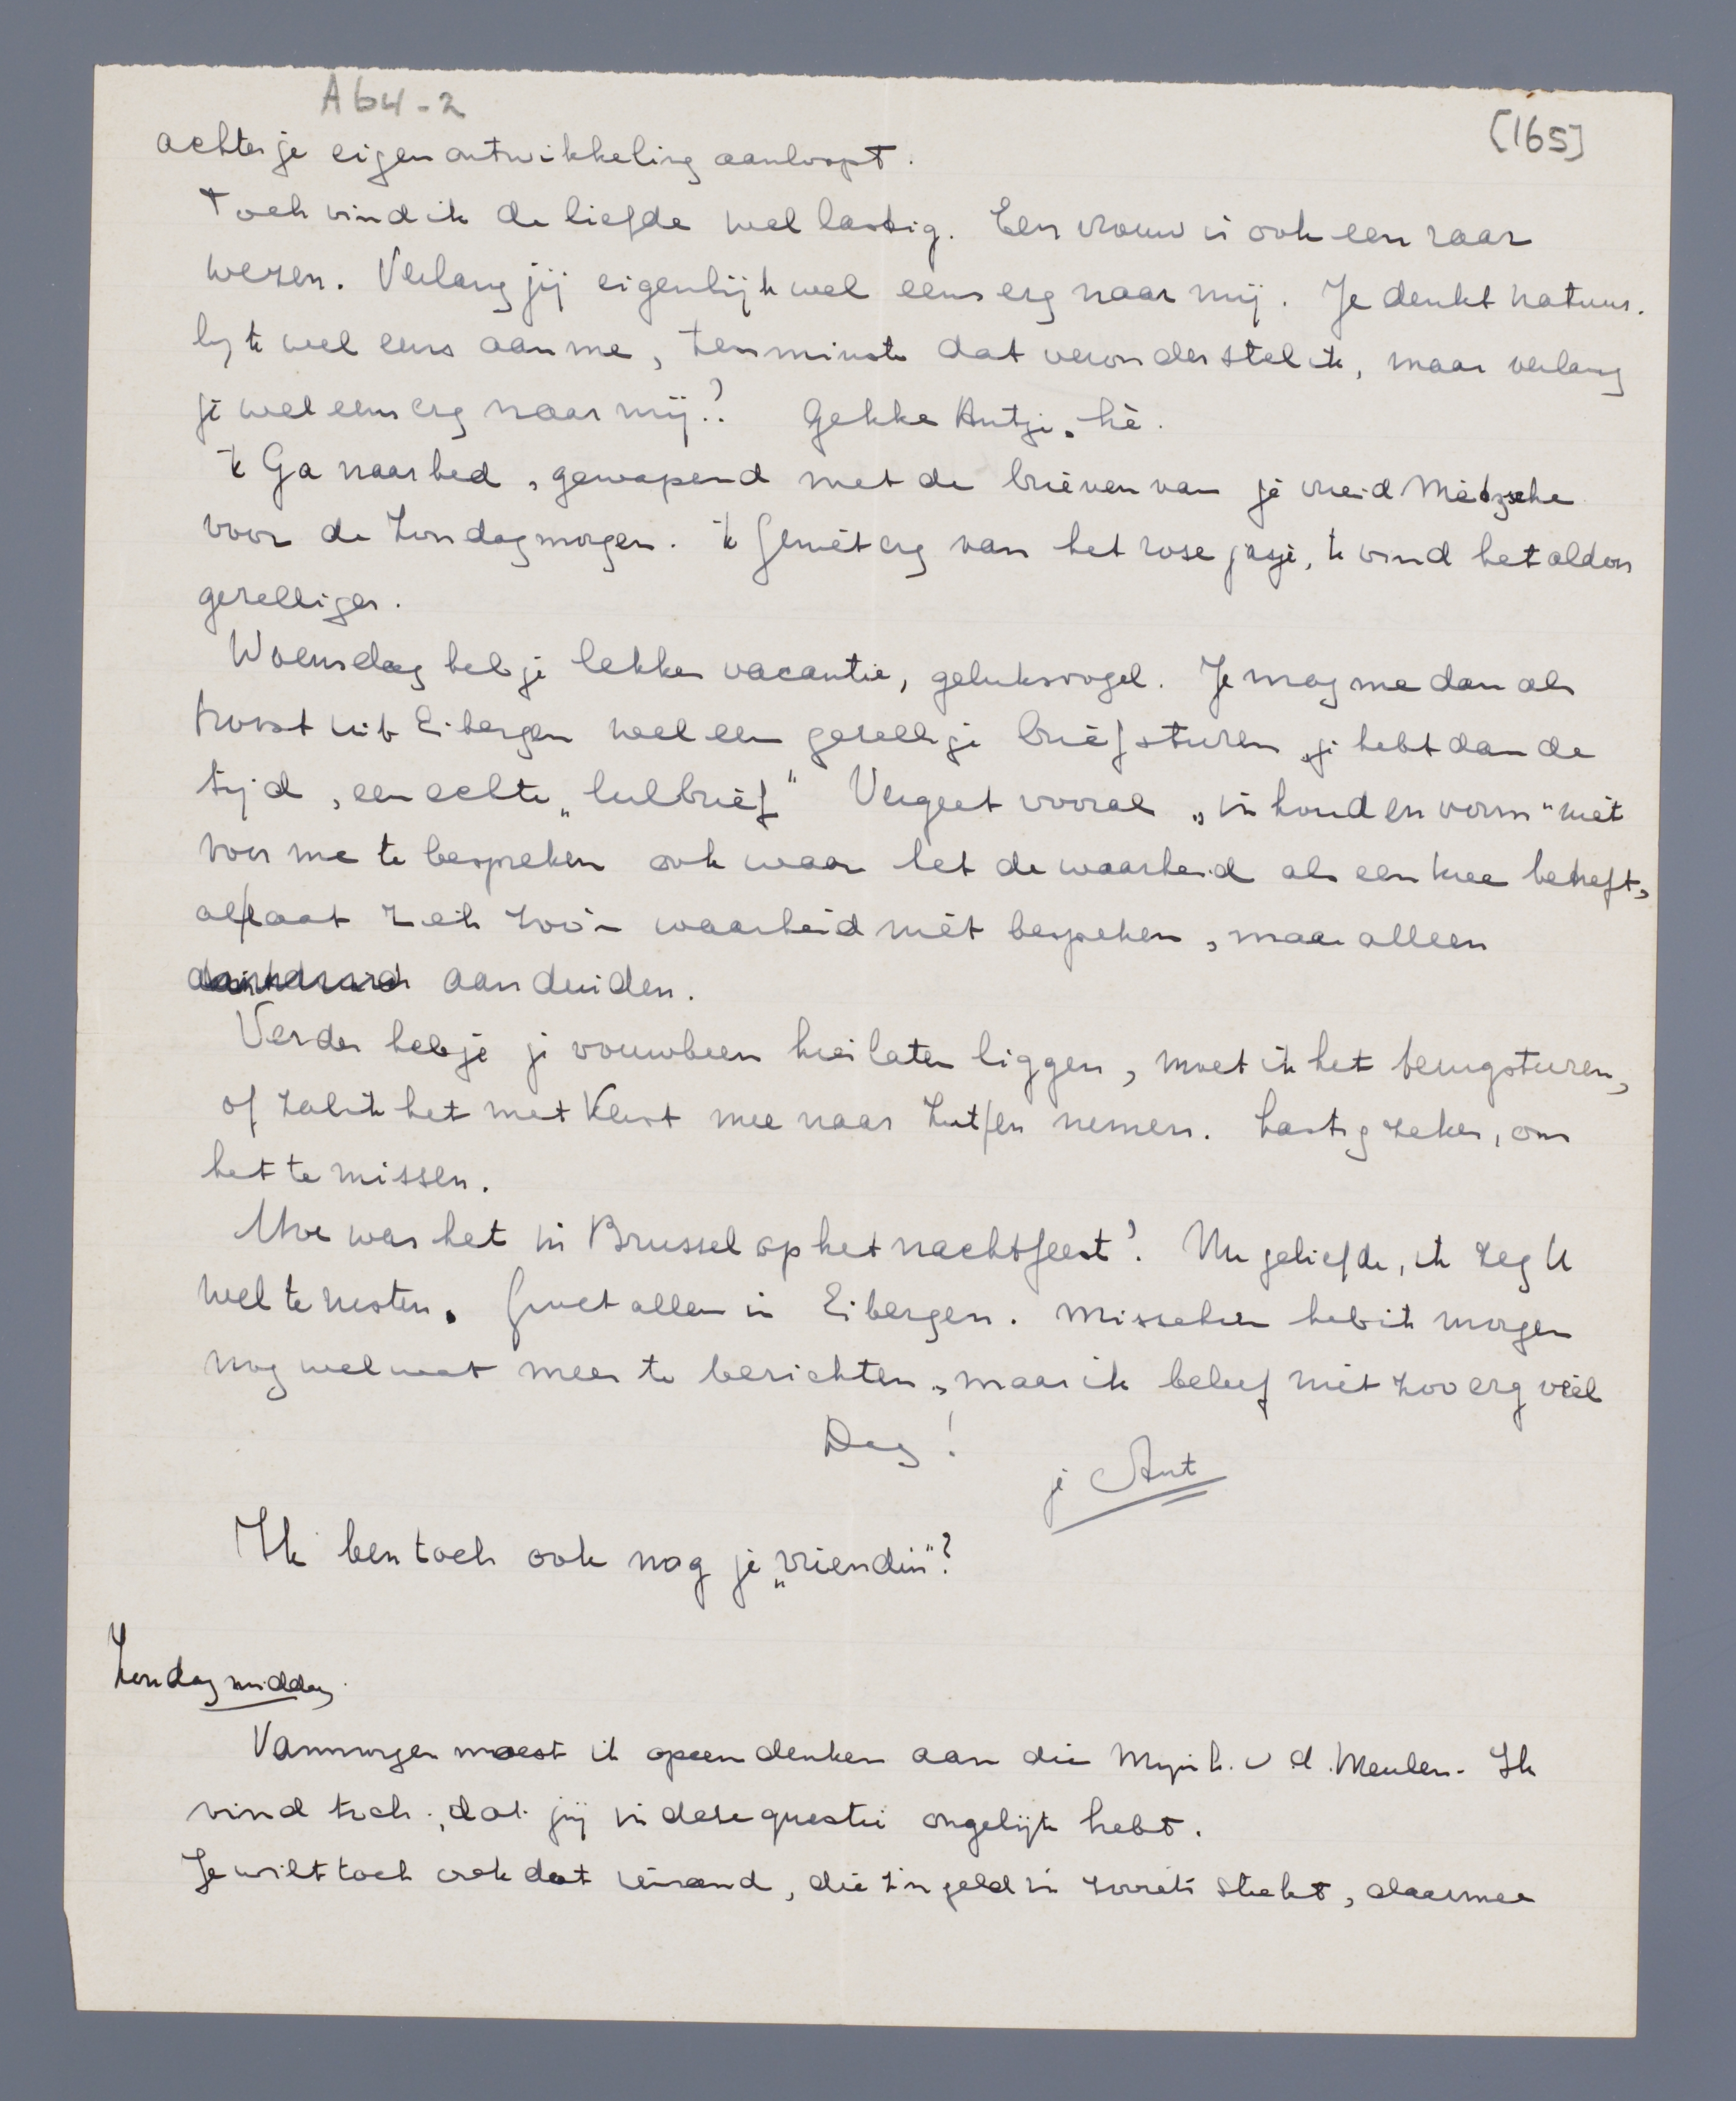 A64-2
[165]
achter je eigen ontwikkeling aanloopt.
Toch vind ik de liefde wel lastig. Een vrouw is ook een raar
wezen. Verlang jij eigenlijk wel eens erg naar mij. Je denkt natuur-
lijk wel eens aan me, tenminste dat veronderstel ik, maar verlang
je wel eens erg naar mij?? Gekke Antje, hè.
'k Ga naar bed, gewapend met de brieven van je vriend Nietzsche
voor de Zondagmorgen. 'k Geniet erg van het rose jasje, 'k vind het aldoor
gezelliger.
Woensdag heb je lekker vacantie, geluksvogel. Je mag me dan als
troost uit Eibergen wel een gezellige brief sturen, je hebt dan de
tijd, een echte „lulbrief" Vergeet vooral „inhoud en vorm" niet
voor me te bespreken ook waar het de waarheid als een twee betreft,
al laat zich zoo'n waarheid niet bespreken, maar alleen
aanduiden.
Verder heb je je vouwbeen hier laten liggen, moet ik het terugsturen,
of zal ik het met Kerst mee naar Zutfen nemen. Lastig zeker, om
het te missen.
Hoe was het in Brussel op het nachtfeest? Nu geliefde, ik zeg U
wel te rusten. Groet allen in Eibergen. Misschien heb ik morgen
nog wel wat meer te berichten, maar ik beleef niet zoo erg veel
Dag!
je Ant
Ik ben toch ook nog je „vriendin"?
Zondagmiddag.
Vanmorgen moest ik opeens denken aan die Mijnh. v d. Meulen. Ik
vind toch, dat jij in deze questie ongelijk hebt.
Je wilt toch ook dat iemand, die z'n geld in zooiets steekt, daarmee